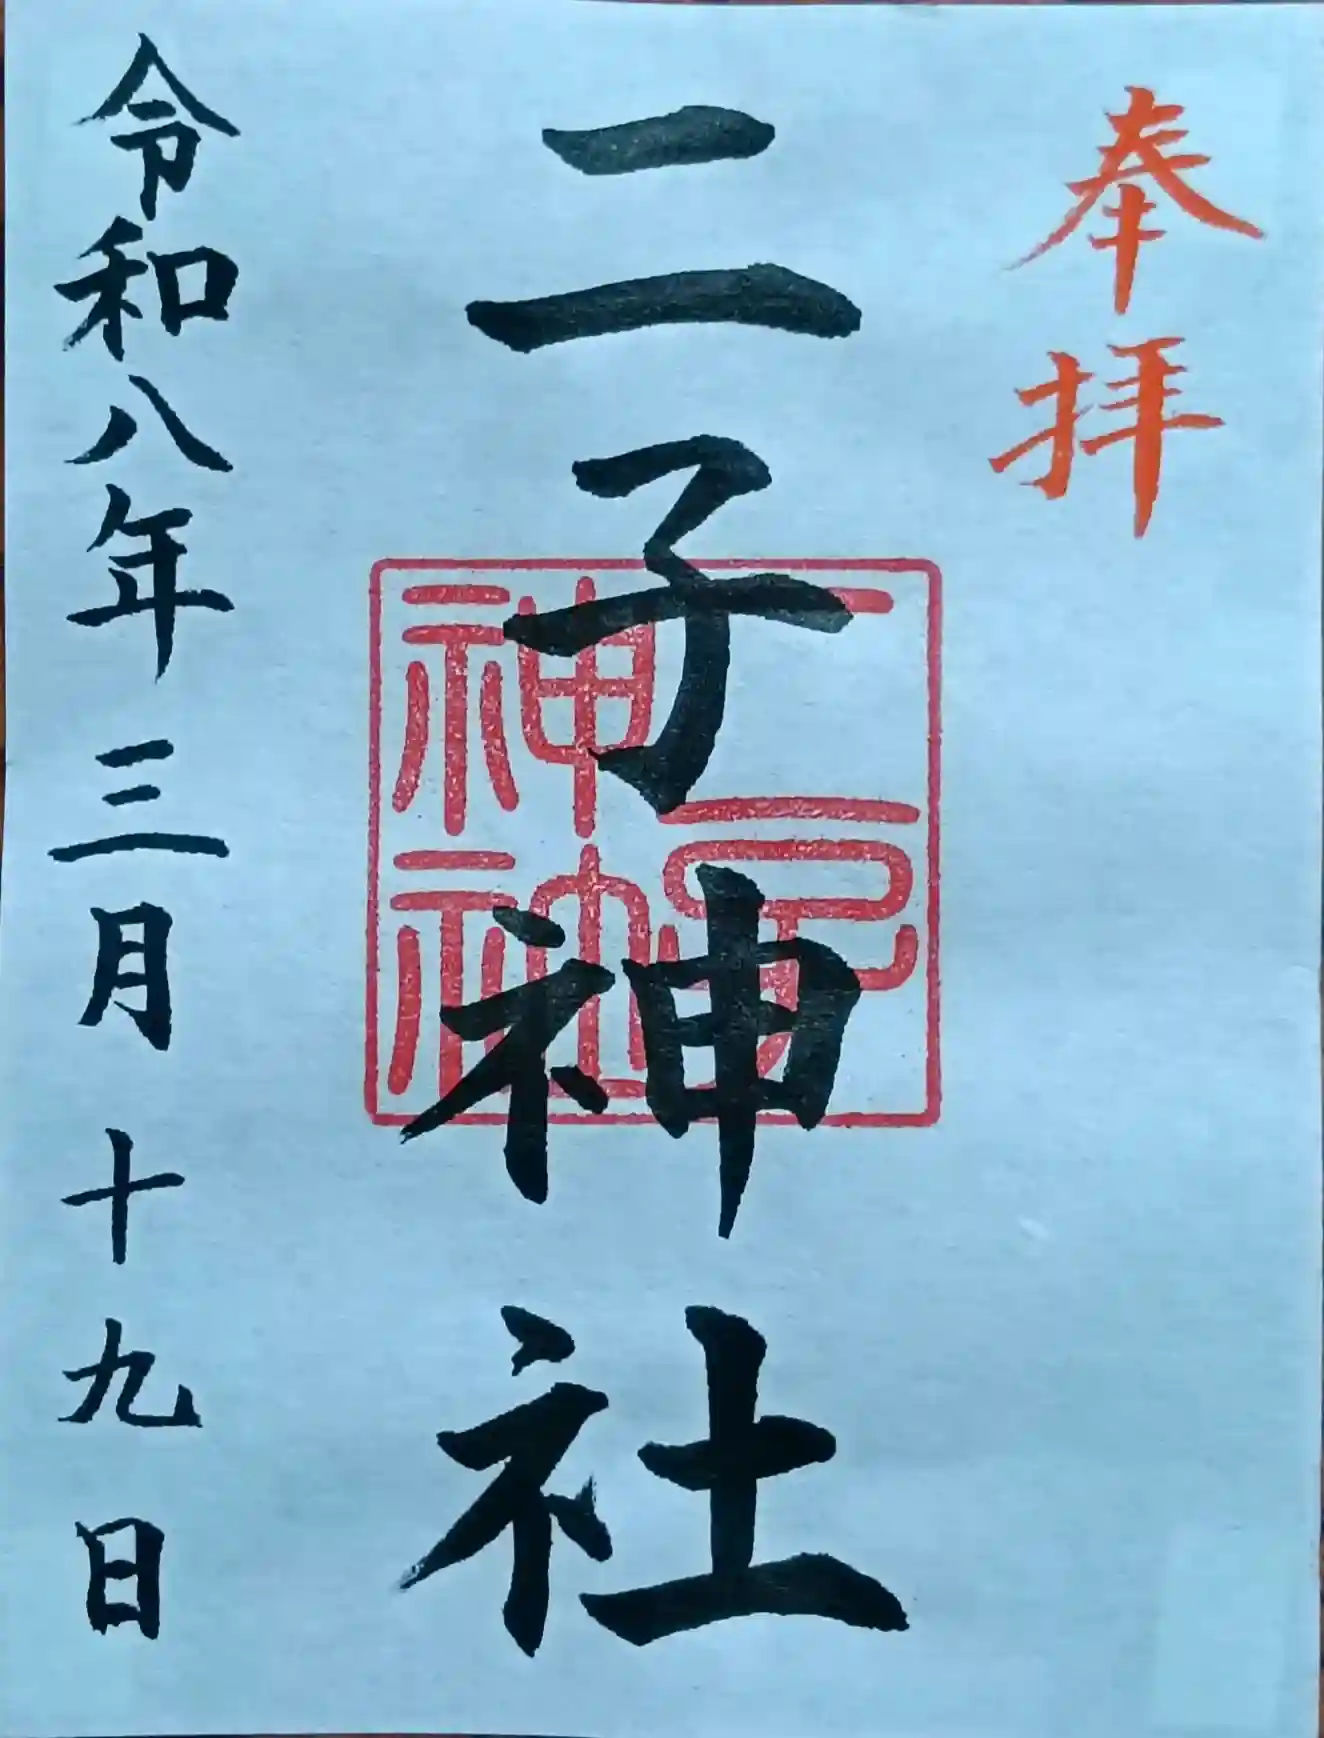 奉拝
二子神社
二子
神社
令和八年三月十九日